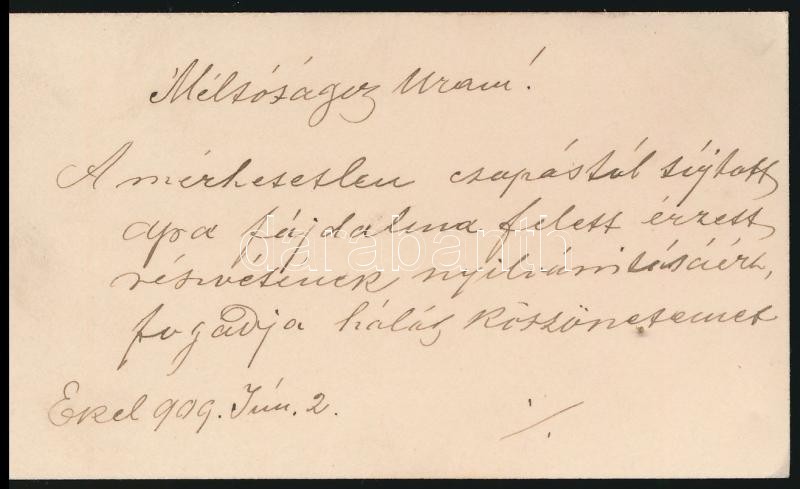 Méltóságos Uram!
A mérhetetlen csapástól sújtott
apa fájdalma felett érzett
részvétének nyilvánításáért,
fogadja hálás köszönetemet
Ekel 909. Jún. 2.
./.
darabanth